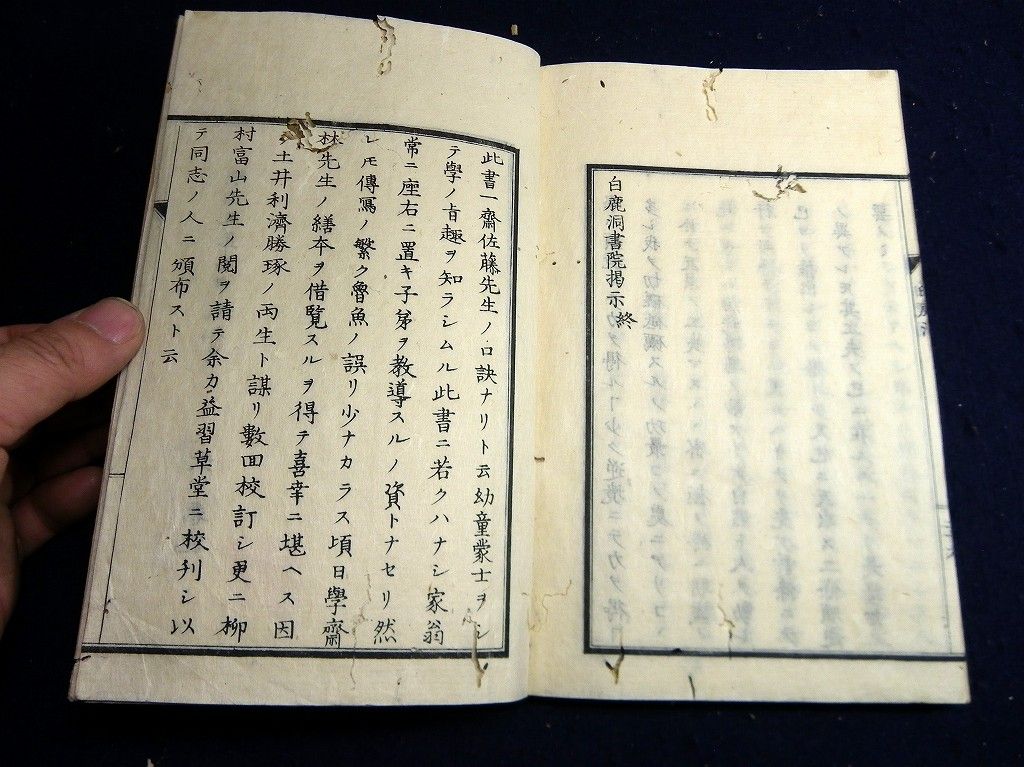 白鹿洞書院揭示終
此書一齋佐藤先生ノ口訣ナリト云幼童蒙士ヲシ
テ學ノ旨趣ヲ知ラシムル此書ニ若クハナシ家翁
常ニ座右ニ置キ子弟ヲ教導スルノ資トナセリ然
レ𪜈傳寫ノ繁ク魯魚ノ誤リ少ナカラス頃日學齋
林先生ノ繕本ヲ借覧スルヲ得テ喜幸ニ堪ヘス因
テ土井利濟勝琢ノ両生ト謀リ數回校訂シ更ニ柳
村富山先生ノ閲ヲ請テ余カ益習草堂ニ校刋シ以
テ同志ノ人ニ頒布スト云